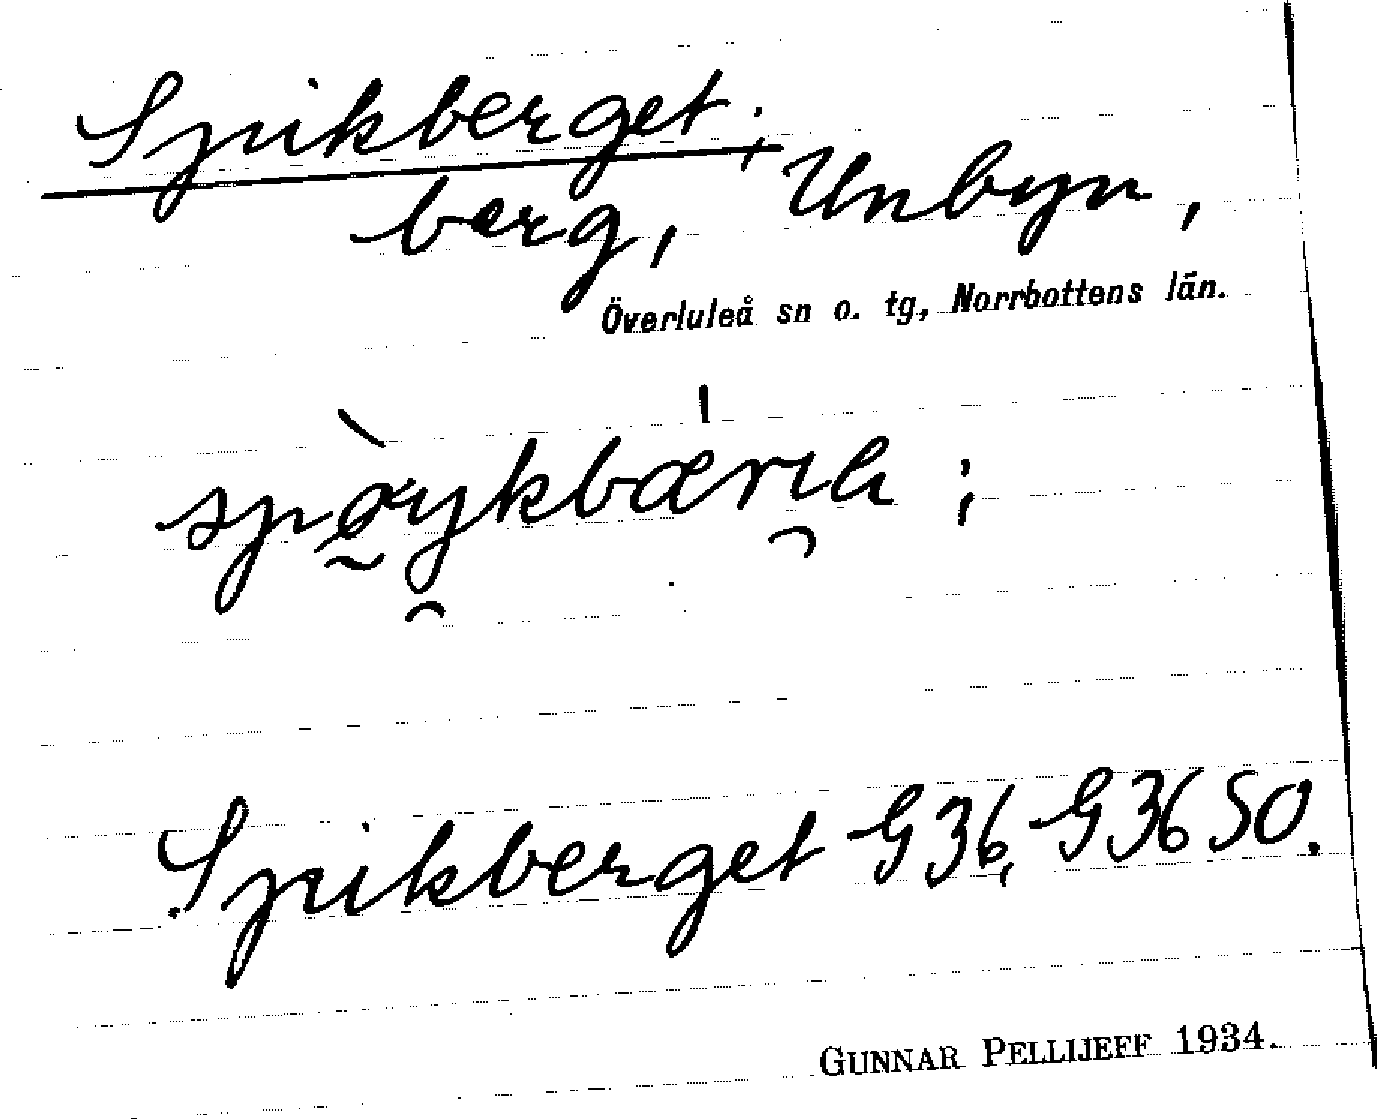 Spikberget;
berg, Unbyn,
Överluleå sn o. tg, Norrbottens län.
Spikberget G36, G36 SO.
GUNNAR PELLIJEFF 1934.